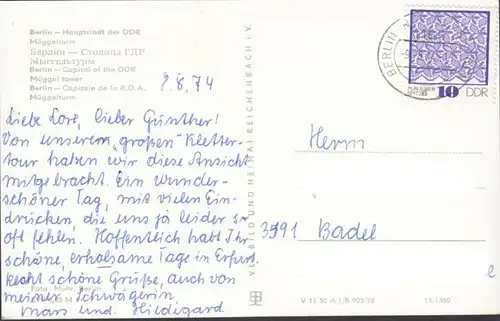 Berlin — Hauptstadt der DDR
Müggelturm
Берлин — Столица ГДР
Мыггельтурм
Berlin — Capital of the GDR
Müggel tower
Berlin — Capitale de la R.D.A.
Müggelturm
9.8.74
Liebe Lore, lieber Günther!
Von unserem „großen" Kletter-
tour haben wir diese Ansicht
mitgebracht. Ein wunder-
schöner Tag, mit vielen Ein-
drücken, die uns ja leider so
oft fehlen. Hoffentlich habt Ihr
schöne, erholsame Tage in Erfurt.
Recht schöne Grüße, auch von
meiner Schwägerin,
und Hildigard.
Foto: Mohr, Berlin
VERLAG BILD UND HEIMAT REICHENBACH I. V.
BERLIN
10 DDR
Herrn
Badel
V 11 50 A 1/B 903/72